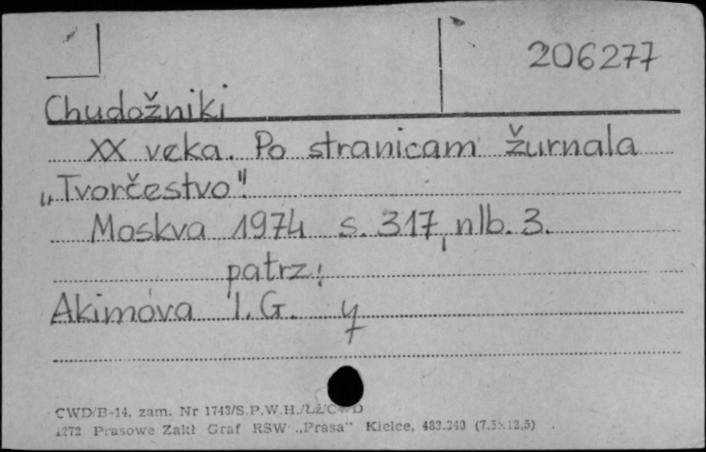 206277
Chudožniki
XX veka. Po stranicam žurnala
„Tvorčestvo".
Moskva 1974 s. 317, nlb. 3.
patrz:
Akimova I. G.
CWD/B-14. zam. Nr 1743/S.P.W.H./Łż/CWD
1272 Prasowe Zakł Graf RSW „Prasa" Kielce, 483.240 (7.5×12,5)